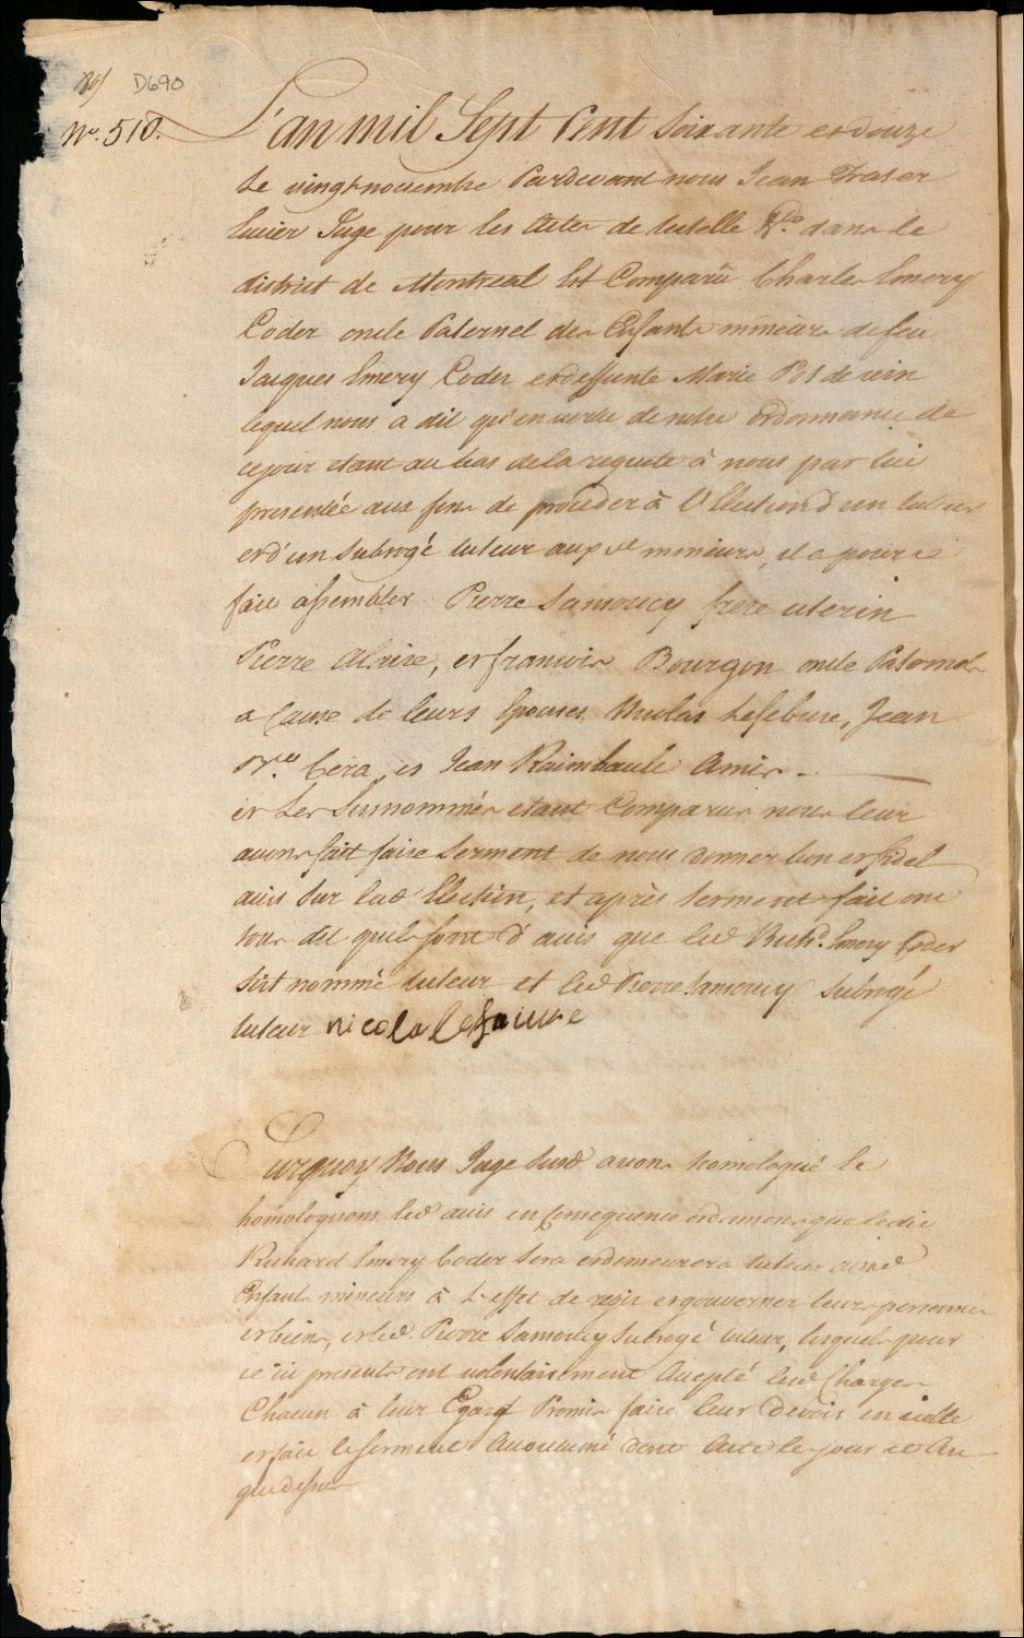 D690
No. 510.
L'an mil Sept Cent Soixante et douze
Le vingt novembre Pardevant nous Jean Fraser
Ecuier Juge pour les Actes de tutelle &a. dans le
district de Montreal Est Comparû Charles Emery
Coder oncle Paternel des Enfants mineurs de feu
Jacques Emery Coder et deffunte Marie Pot de vin
lequel nous a dit qu'en vertu de notre ordonnance de
ce jour etant au bas de la requete à nous par lui
presentée aux fins de proceder à l'Election d'un tuteur
et d'un Subrogé tuteur aux d mineurs, il a pour ce
fait assembler Pierre Samoucy frere uterin
Pierre Alaire, et francois Bourgon oncle Paternels
a Cause de leurs Epouses Nicolas Lefebure, Jean
Bte. Cera, et Jean Raimbault Amis.
et Les Surnommés etant Comparus nous leur
avons fait faire Serment de nous donner bon et fidel
avis Sur lad Election, et après Serment fait ont
tous dit quils sont d'avis que led Richd. Emery Coder
soit nommé tuteur et led Pierre Samoucy Subrogé
tuteur nicola lefaivre
Surquoy Nous Juge Susd avons homologué et
homologuons led avis en Consequence ordonnons que ledit
Richard Emery Coder Sera et demeurera tuteur auxd
Enfants mineurs à L'effet de regir et gouverner leurs personnes
et biens, et led. Pierre Samoucy Subrogé tuteur, lesquels pour
ce ici presents ont volontairement Accepté lesd Charges
Chacun à leur Egard Promis faire leur devoir en icelle
et fait le serment Accoutumé dont Acte le jour et An
que dessus